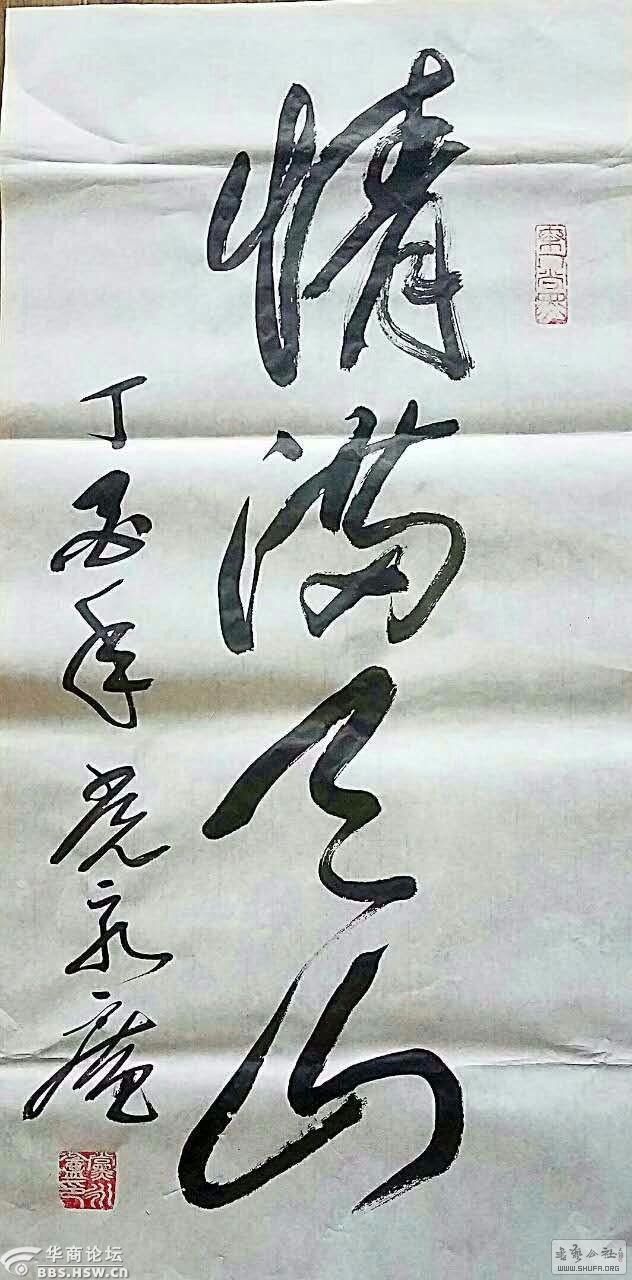 情满天山
丁酉年 党永庵
华商论坛
BBS.HSW.CN
书艺公社
WWW.SHUFA.ORG